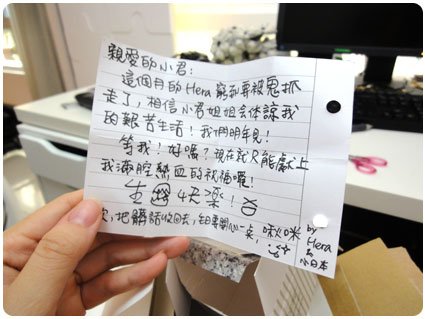 親愛的小君:
這個月的Hera窮到要被鬼抓
走了,相信小君姐姐會体諒我
的艱苦生活!我們明年見!
等我!好嗎?現在就只能獻上
我滿腔熱血的祝福喔!
生日快樂!
把髒話收回去,要開心一点,啾咪
by
Hera
小日本